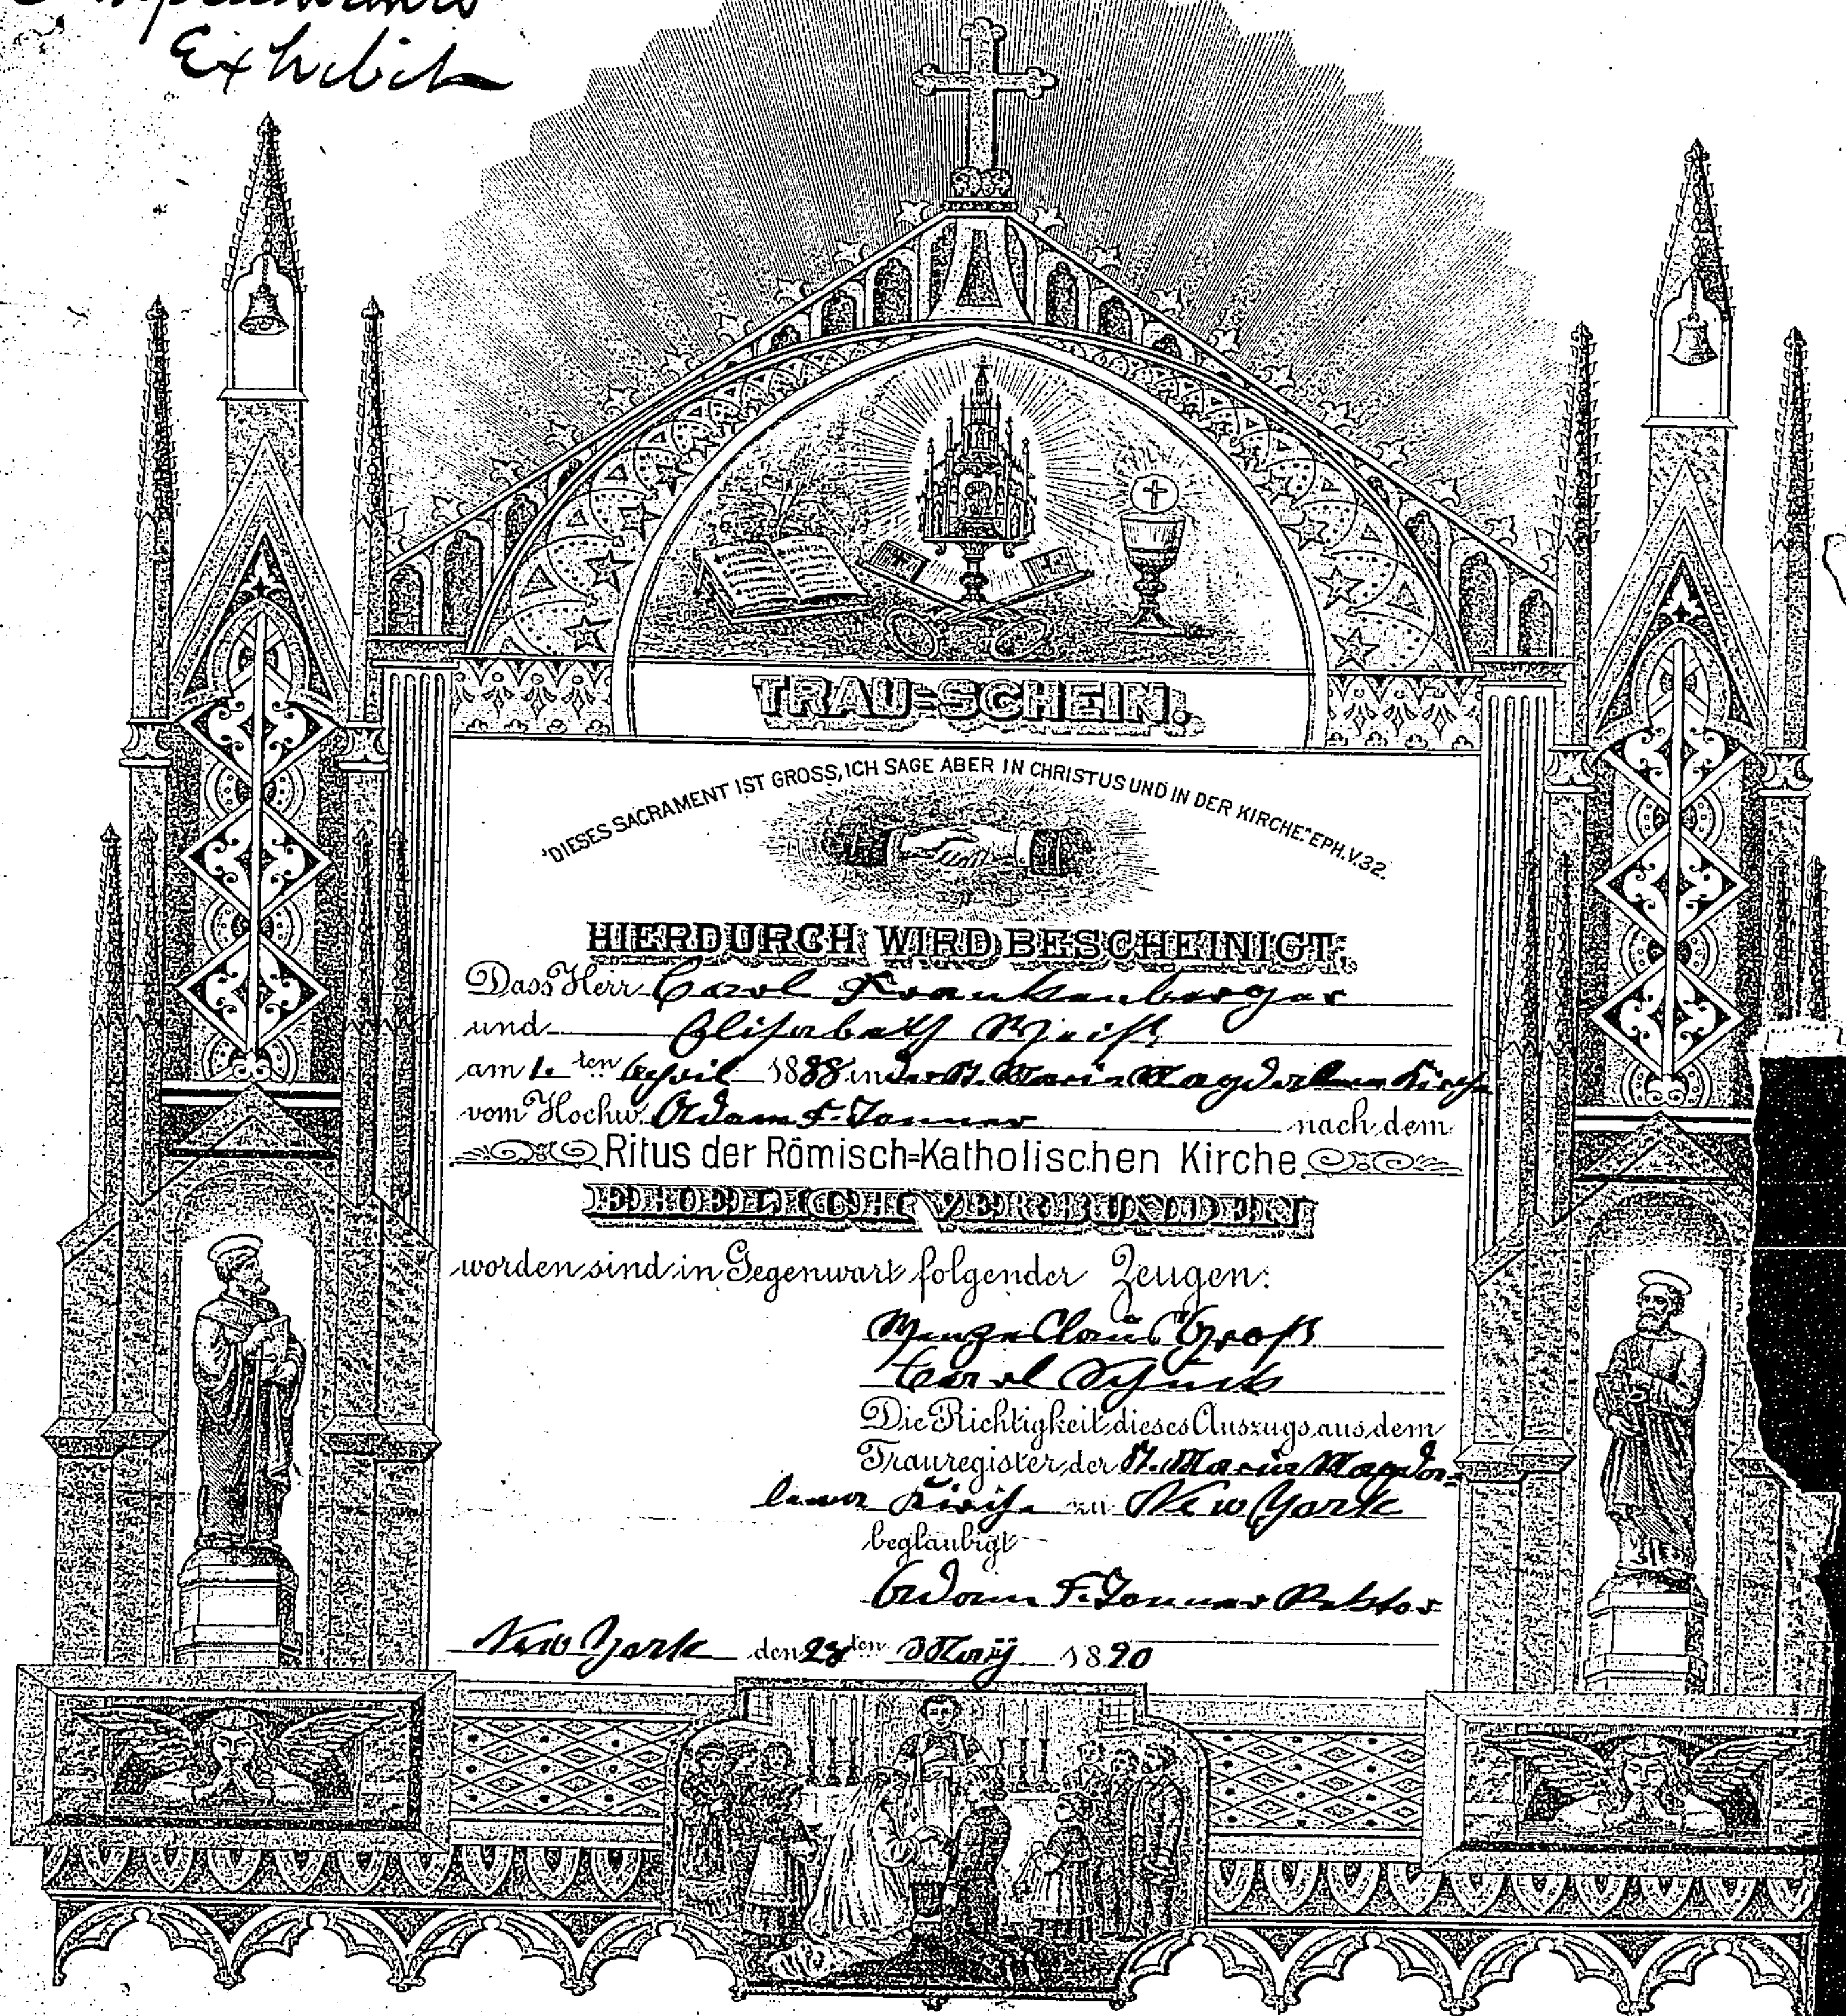 Exhibit
TRAU=SCHEIN.
"DIESES SACRAMENT IST GROSS, ICH SAGE ABER IN CHRISTUS UND IN DER KIRCHE." EPH. V. 32.
HIERDURCH WIRD BESCHEINIGT,
Dass Herr Carl Frankenberger
und Elisabeth
am 1. ten April 1888 in der St. Maria Magdalena Kirche
vom Hochw. Adam F. Tonner nach dem
Ritus der Römisch=Katholischen Kirche
EHELICH VERBUNDEN
worden sind in Gegenwart folgender Zeugen:
Groß
Carl
Die Richtigkeit dieses Auszugs aus dem
Trauregister der St. Maria Magda-
lena Kirche zu New York
beglaubigt
Adam F. Tonner Rektor
New York den 28 ten May 1890